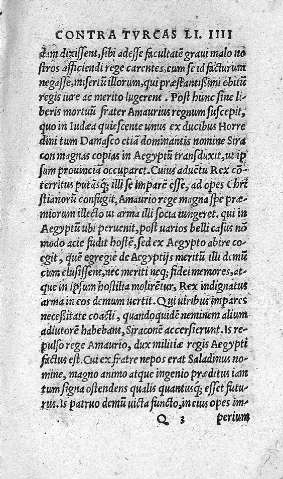 CONTRA TVRCAS LI. IIII
dam dixissent, sibi adesse facultatē graui malo no
stros afficiendi rege carentes. cum se id facturum
negasse, miserū illorum, qui præstantissimi obitū
regis iure ac merito lugerent. Post hunc sine li-
beris mortuū frater Amaurius regnum suscepit,
quo in Iudæa quiescente unus ex ducibus Horre
dini tum Damasco etiā dominantis nomine Sira
con magnas copias in Aegyptū transduxit, ut ip
sum prouincia occuparet. Cuius aduētu Rex cō-
territus putansq; illi se imparē esse, ad opes Chri
stianorū confugit, Amaurio rege magna spe præ-
miorum illecto ut arma illi socia iungeret. qui in
Aegyptū ubi peruenit, post varios belli casus no
modo acie fudit hostē, sed ex Aegypto abire co-
egit, quē egregiè de Aegyptijs meritū illi demū
cum elusissent, nec meriti neq; fidei memores, at-
que in ipsum hostilia molirētur, Rex indignatus
arma in eos demum uertit. Qui uiribus impares
necessitate coacti, quandoquidē neminem alium
adiutorē habebant, Siraconē accersierunt. Is re-
pulso rege Amaurio, dux militiæ regis Aegypti
factus est. Cui ex fratre nepos erat Saladinus no-
mine, magno animo atque ingenio præditus iam
tum signa ostendens qualis quantusq; esset futu-
rus. Is patruo demū uita functo, in eius opes im-
Q 3 perium